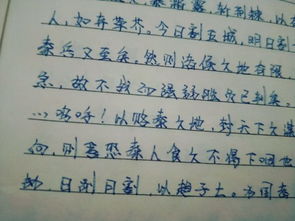 人，如弃草芥。今日割五城，明日割十
秦兵又至矣。然则诸侯之地有限
急，故不战而强弱胜负已判矣。
……呜呼！以赂秦之地，封天下之谋
向，则吾恐秦人食之不得下咽也
劫，日削月割，以趋于亡。为国者